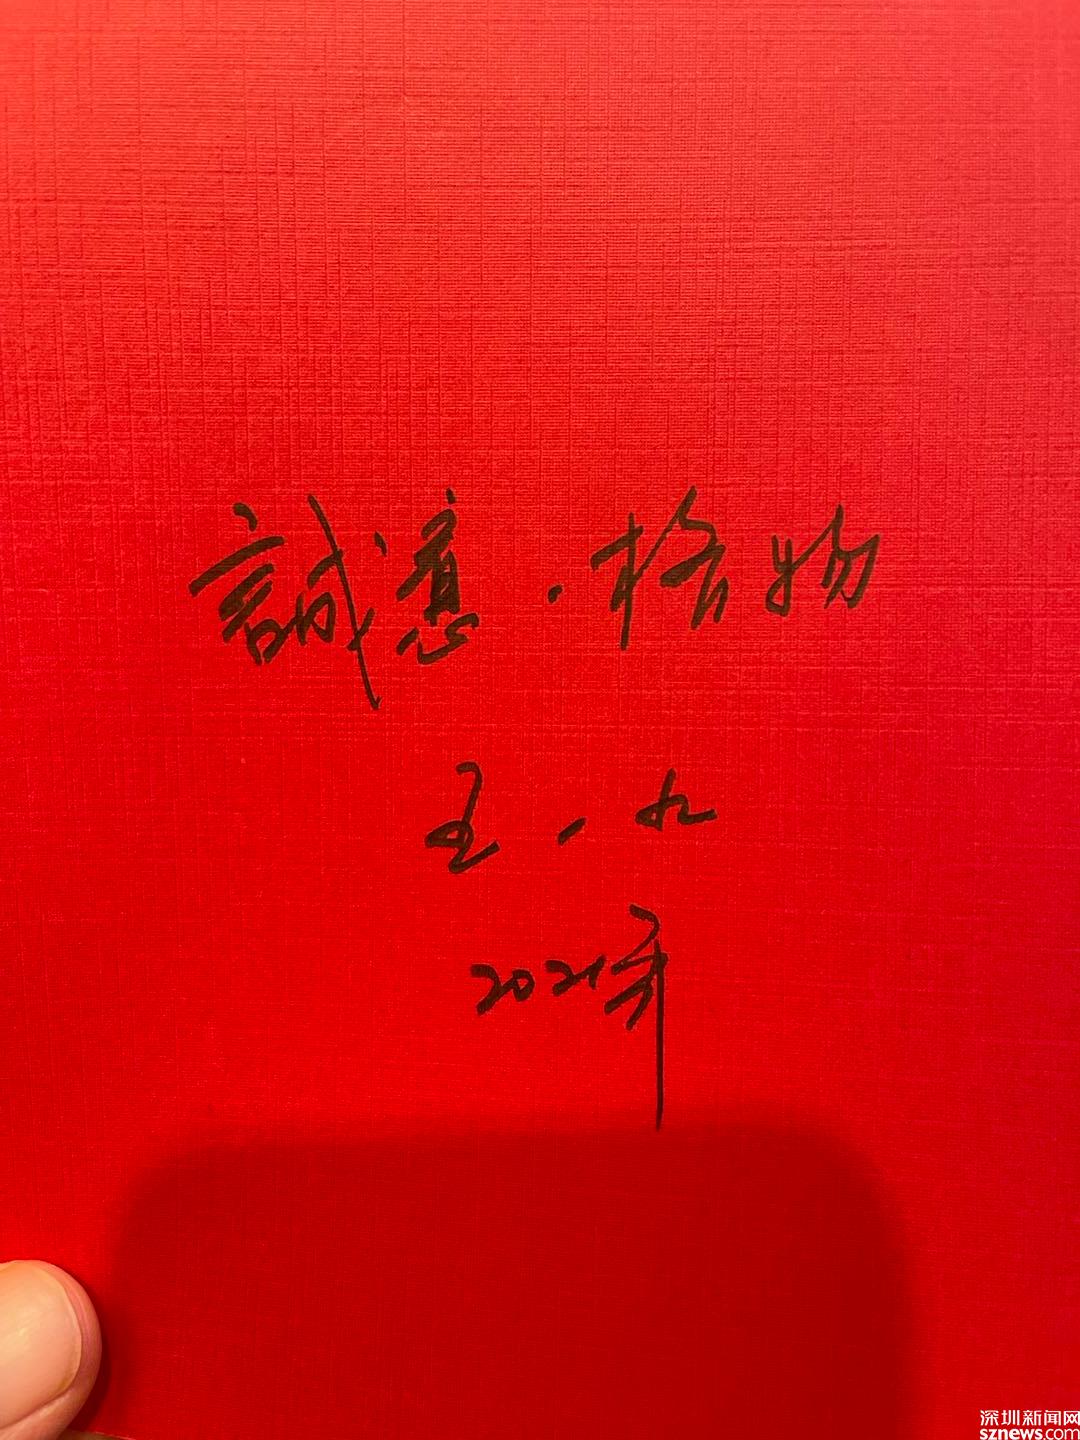 誠意·格物
王一九
2021年
深圳新闻网
sznews.com